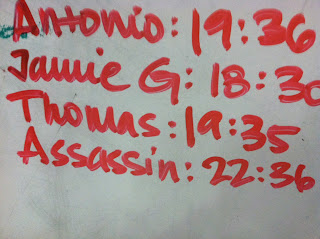 Antonio: 19:36
Jamie G: 18:30
Thomas: 19:35
Assassin: 22:36